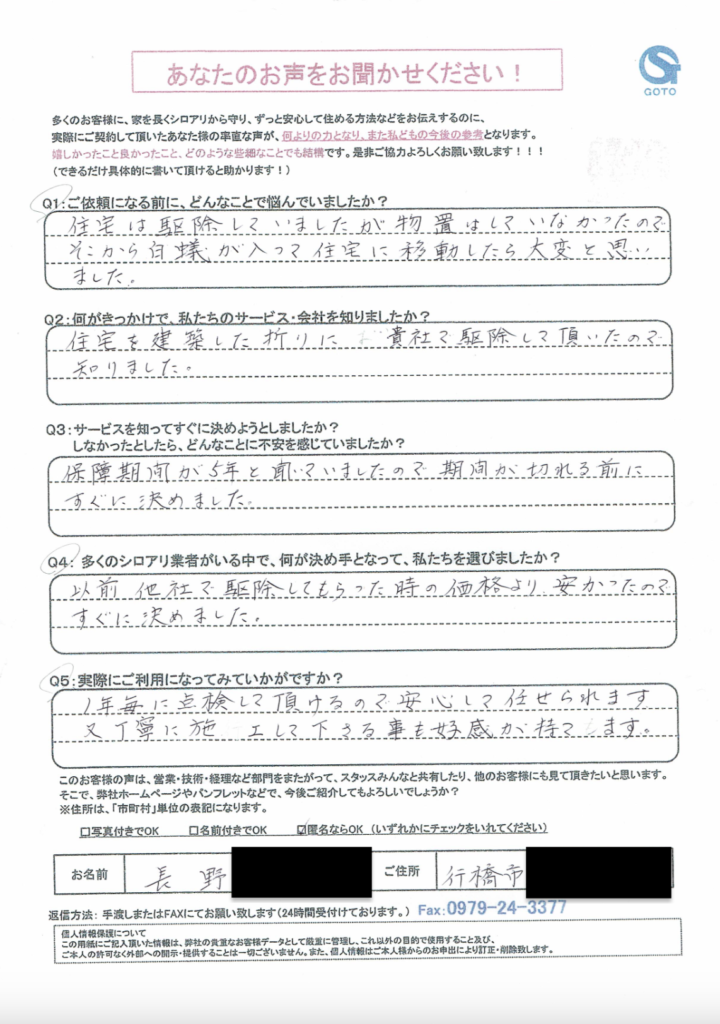 あなたのお声をお聞かせください！
GOTO
多くのお客様に、家を長くシロアリから守り、ずっと安心して住める方法などをお伝えするのに、
実際にご契約して頂いたあなた様の率直な声が、何よりの力となり、また私どもの今後の参考となります。
嬉しかったこと良かったこと、どのような些細なことでも結構です。是非ご協力よろしくお願い致します！！！
（できるだけ具体的に書いて頂けると助かります！）
Q1:ご依頼になる前に、どんなことで悩んでいましたか？
住宅は駆除していましたが物置はしていなかったので
そこから白蟻が入って住宅に移動したら大変と思い
ました。
Q2:何がきっかけで、私たちのサービス・会社を知りましたか？
住宅を建築した折りに 貴社で駆除して頂いたので
知りました。
Q3:サービスを知ってすぐに決めようとしましたか？
しなかったとしたら、どんなことに不安を感じていましたか？
保障期間が5年と聞いていましたので期間が切れる前に
すぐに決めました。
Q4: 多くのシロアリ業者がいる中で、何が決め手となって、私たちを選びましたか？
以前他社で駆除してもらった時の価格より安かったので
すぐに決めました。
Q5:実際にご利用になってみていかがですか？
1年毎に点検して頂けるので安心して任せられます
又丁寧に施工して下さる事も好感が持てます。
このお客様の声は、営業・技術・経理など部門をまたがって、スタッスみんなと共有したり、他のお客様にも見て頂きたいと思います。
そこで、弊社ホームページやパンフレットなどで、今後ご紹介してもよろしいでしょうか？
※住所は、「市町村」単位の表記になります。
□写真付きでOK □名前付きでOK ☑匿名ならOK（いずれかにチェックをいれてください）
お名前 長野 ご住所 行橋市
返信方法： 手渡しまたはFAXにてお願い致します（24時間受付けております。） Fax:0979-24-3377
個人情報保護について
この用紙にご記入頂いた情報は、弊社の貴重なお客様データとして厳重に管理し、これ以外の目的で使用すること及び、
ご本人の許可なく外部への開示・提供することは一切ございません。また、個人情報はご本人様からのお申出により訂正・削除致します。